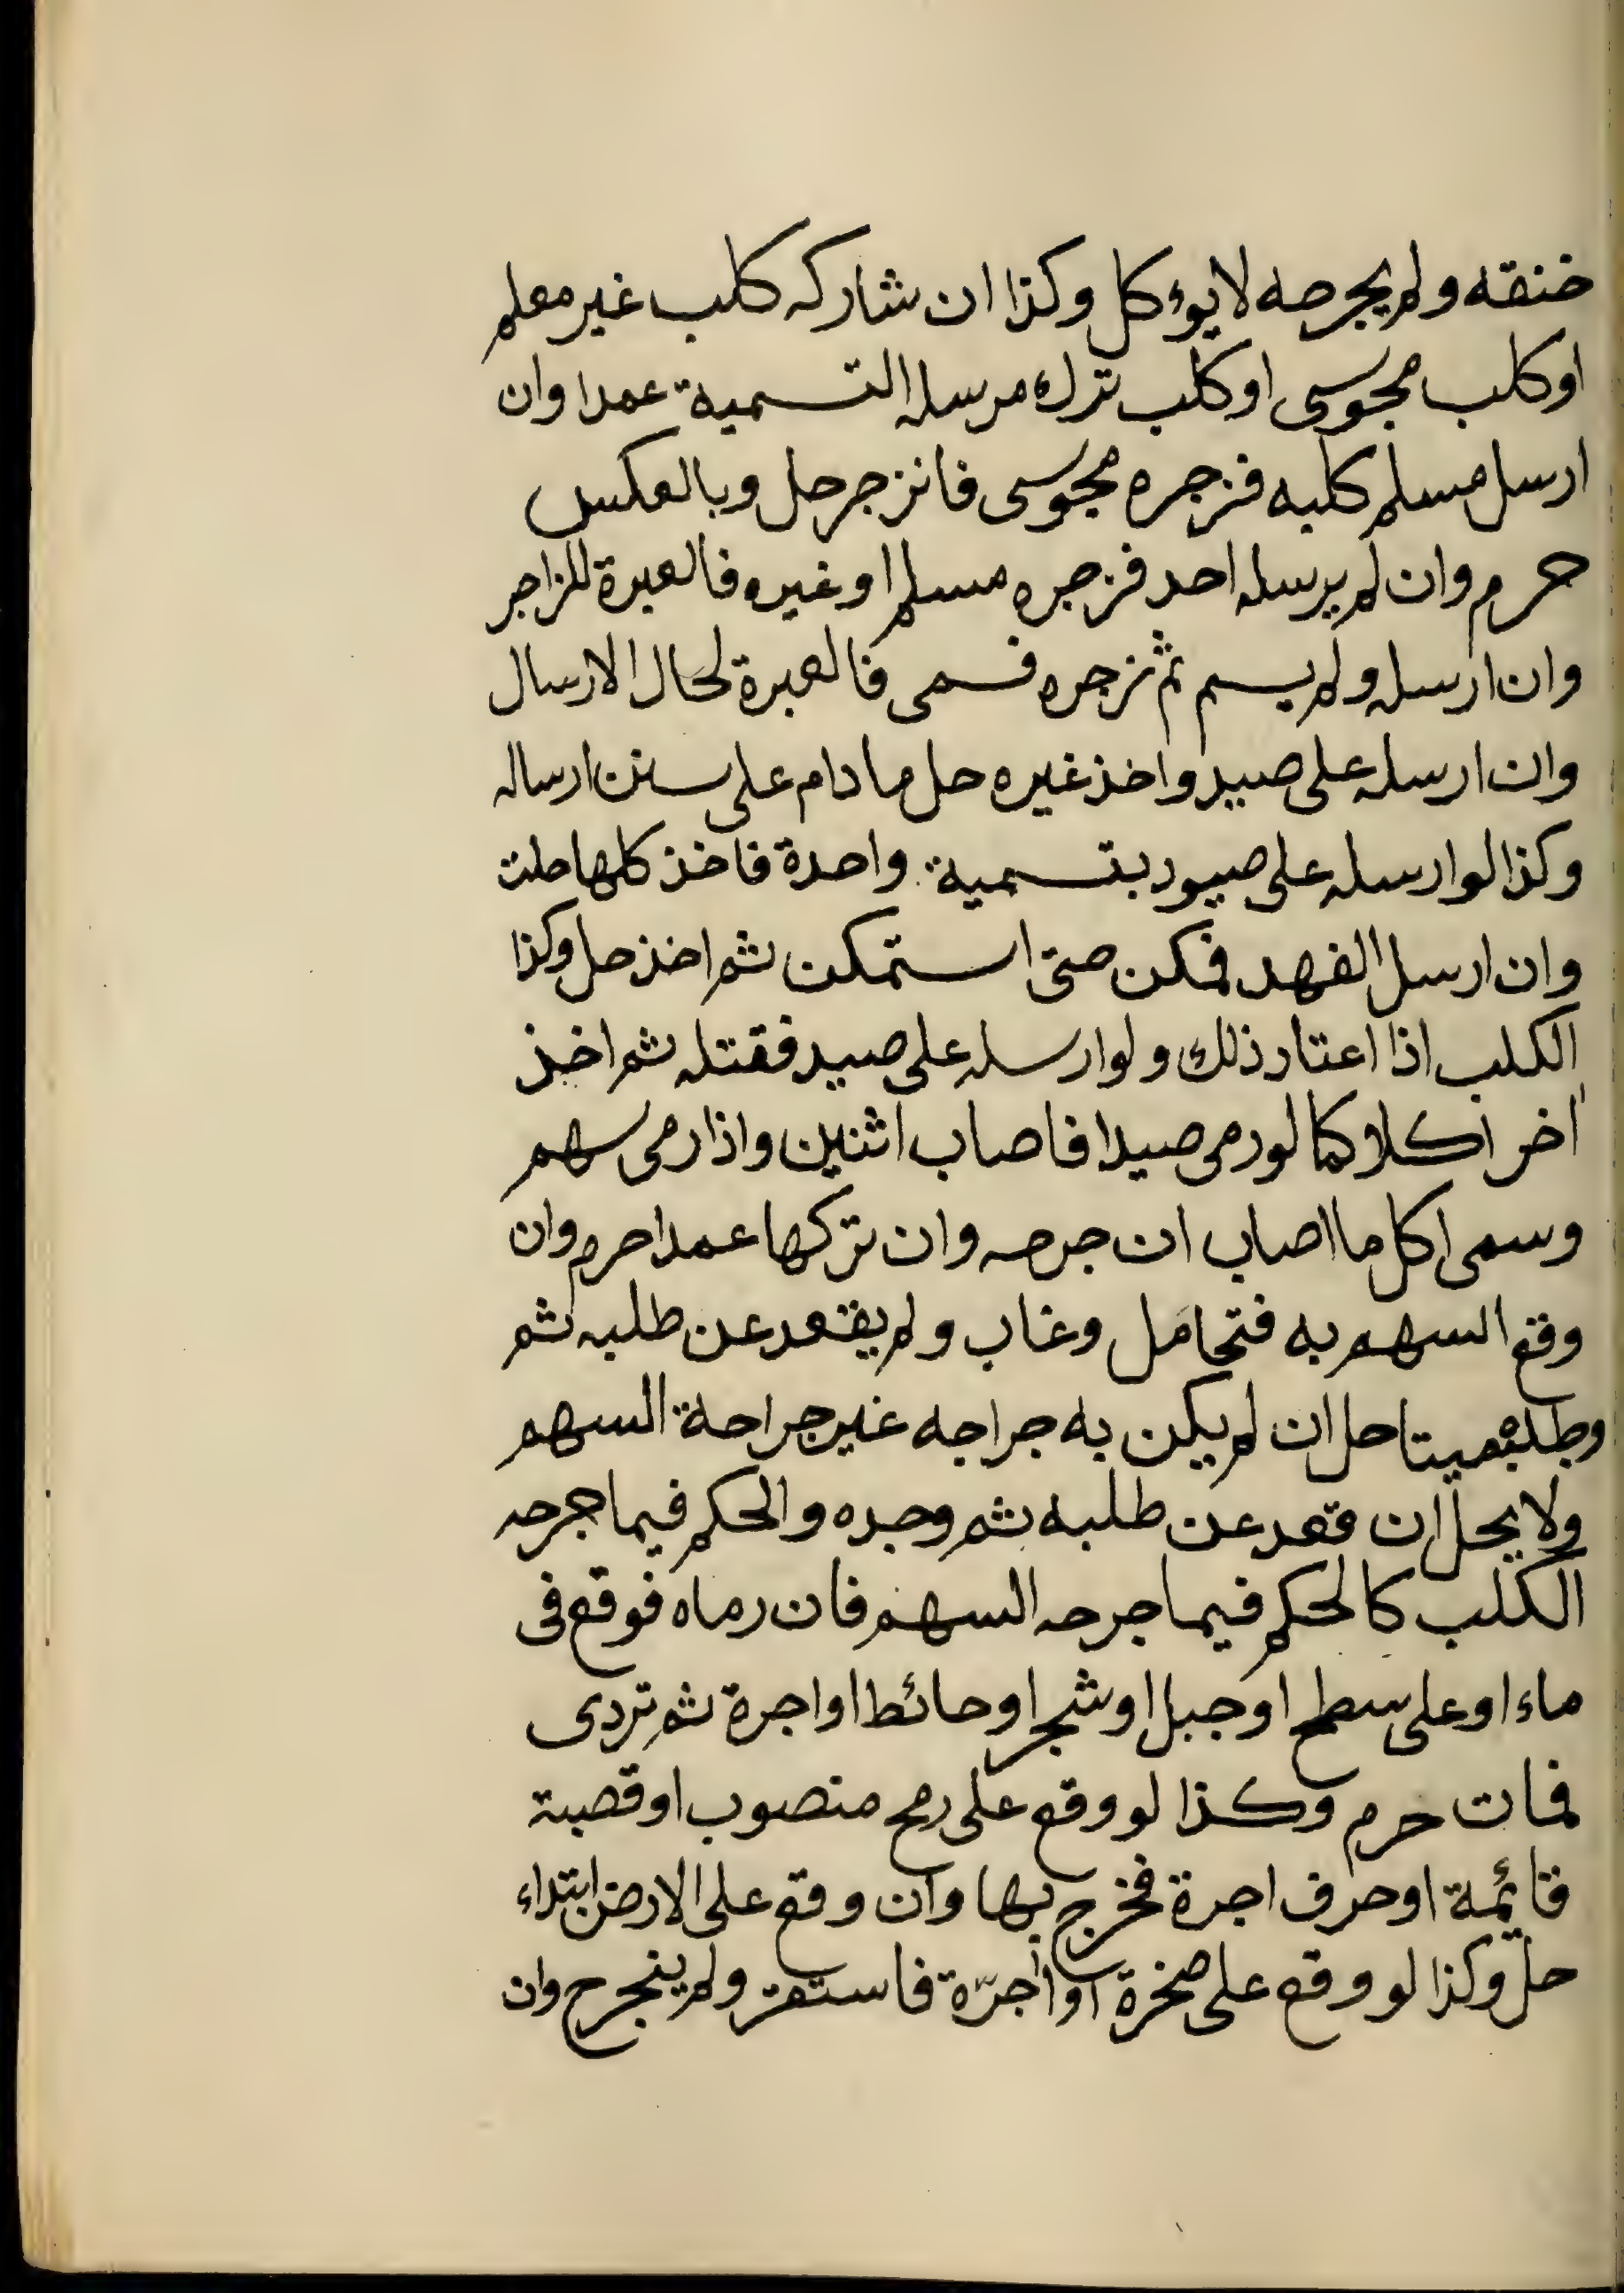 خنقه ولم يجرحه لا يوءكل وكذا ان شاركه كلب غير معلم
او كلب مجوسى او كلب ترك مرسله التسمية عمدا وان
ارسل مسلم كلبه فزجره مجوسى فانزجر حل وبالعكس
حرم وان لم يرسله احد فزجره مسلم او غيره فالعبرة للزاجر
وان ارسله ولم يسم ثم زجره فسمى فالعبرة لحال الارسال
وان ارسله على صيد واخذ غيره حل ما دام على سنن ارساله
وكذا لو ارسله على صيود بتسمية واحدة فاخذ كلها حلت
وان ارسل الفهد فمكن حتى استمكن ثم اخذ حل وكذا
الكلب اذا اعتار ذلك ولو ارسله على صيد فقتله ثم اخذ
اخر اكلا كما لو رمى صيدا فاصاب اثنين واذا رمى سهم
وسمى اكل ما اصاب ان جرحه وان تركها عمدا حرم وان
وقع السهم به فتحامل وغاب ولم يقعد عن طلبه ثم
وطلبه ميتا حل ان لم يكن به جراحه غير جراحة السهم
ولا يحل ان قعد عن طلبه ثم وجده والحكم فيما جرحه
الكلب كالحكم فيما جرحه السهم فان رماه فوقع فى
ماء او على سطح او جبل او شجر او حائط او اجرة ثم تردى
فمات حرم وكذا لو وقع على رمح منصوب او قصبة
قائمة او حرف اجرة فخرج بها وان وقع على الارض ابتداء
حلّ وكذا لو وقع على صخرة او اجرّة فاستقر ولم ينجرح وان